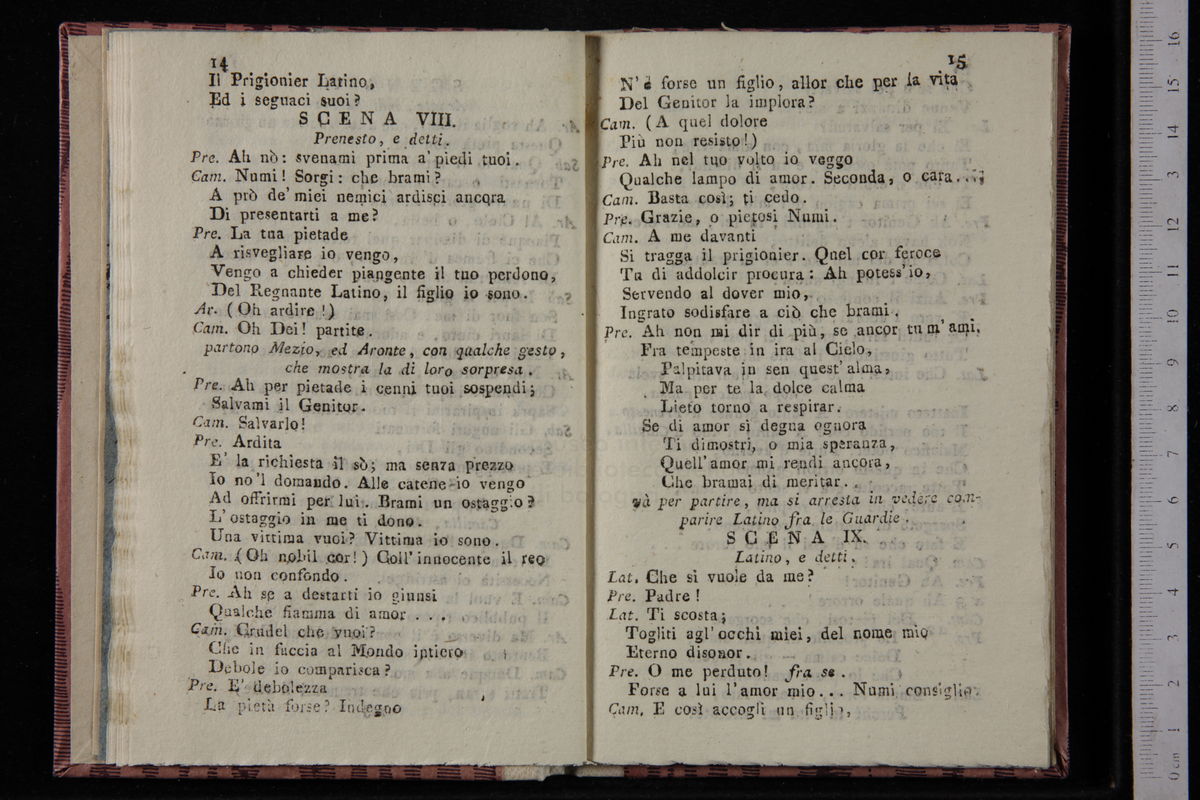 14
Il Prigionier Latino,
Ed i seguaci suoi?
SCENA VIII.
Prenesto, e detti.
Pre. Ah nò: svenami prima a' piedi tuoi.
Cam. Numi! Sorgi: che brami?
A prò de' miei nemici ardisci ancora
Di presentarti a me?
Pre. La tua pietade
A risvegliare io vengo,
Vengo a chieder piangente il tuo perdono,
Del Regnante Latino, il figlio io sono.
Ar. (Oh ardire!)
Cam. Oh Dei! partite.
partono Mezio, ed Aronte, con qualche gesto,
che mostra la di loro sorpresa.
Pre. Ah per pietade i cenni tuoi sospendi;
Salvami il Genitor.
Cam. Salvarlo!
Pre. Ardita
E' la richiesta il sò; ma senza prezzo
Io no'l domando. Alle catene io vengo
Ad offrirmi per lui. Brami un ostaggio?
L'ostaggio in me ti dono.
Una vittima vuoi? Vittima io sono.
Cam. (Oh nobil cor!) Coll'innocente il reo
Io non confondo.
Pre. Ah se a destarti io giunsi
Qualche fiamma di amor . . .
Cam. Crudel che vuoi?
Che in faccia al Mondo intiero
Debole io comparisca?
Pre. E' debolezza
La pietà forse? Indegno
15
N'è forse un figlio, allor che per la vita
Del Genitor la implora?
Cam. (A quel dolore
Più non resisto!)
Pre. Ah nel tuo volto io veggo
Qualche lampo di amor. Seconda, o cara...
Cam. Basta così; ti cedo.
Pre. Grazie, o pietosi Numi.
Cam. A me davanti
Si tragga il prigionier. Quel cor feroce
Tu di addolcir procura: Ah potess'io,
Servendo al dover mio,
Ingrato sodisfare a ciò che brami.
Pre. Ah non mi dir di più, se ancor tu m'ami.
Fra tempeste in ira al Cielo,
Palpitava in sen quest'alma,
Ma per te la dolce calma
Lieto torno a respirar.
Se di amor sì degna ognora
Ti dimostri, o mia speranza,
Quell'amor mi rendi ancora,
Che bramai di meritar.
và per partire, ma si arresta in vedere com-
parire Latino fra le Guardie.
SCENA IX.
Latino, e detti.
Lat. Che si vuole da me?
Pre. Padre!
Lat. Ti scosta;
Togliti agl'occhi miei, del nome mio
Eterno disonor.
Pre. O me perduto! fra se.
Forse a lui l'amor mio... Numi consiglio.
Cam. E così accogli un figlio,